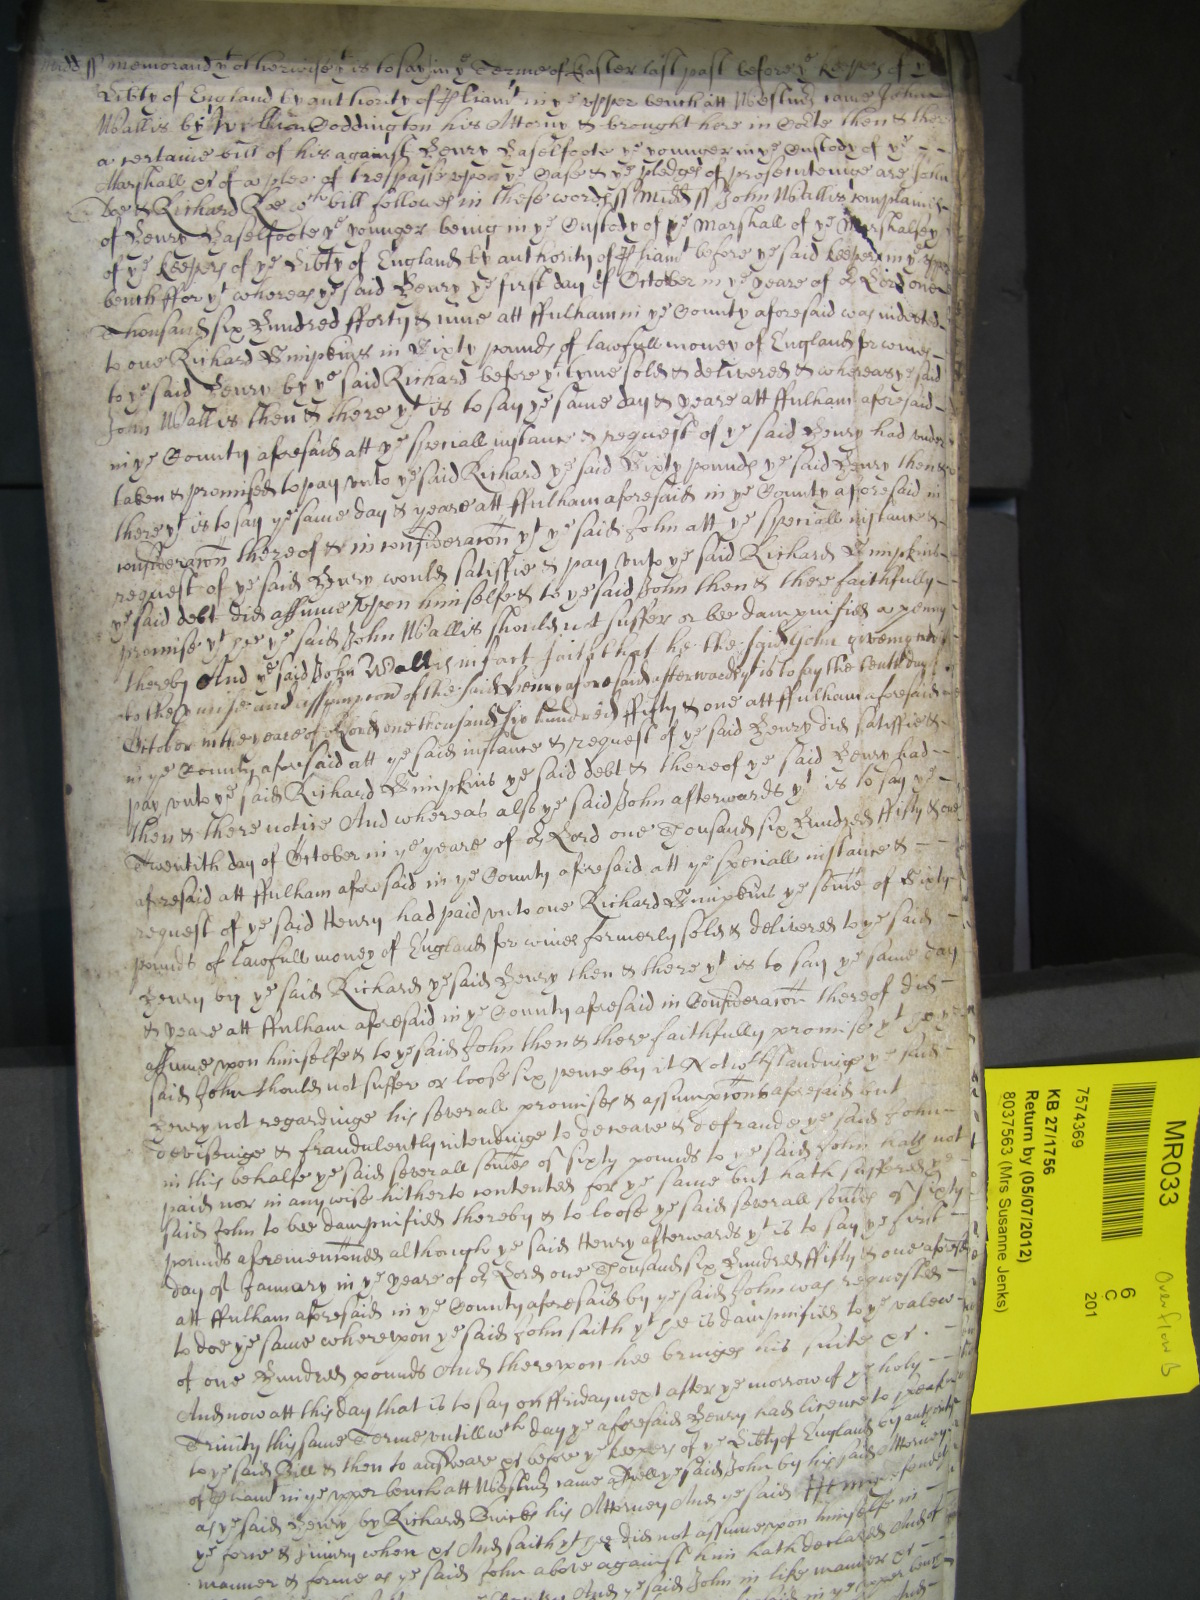 Midd ss memorand yt otherwise yt is to say in ye Terme of Easter last past before ye keepers of ye
Lib'ty of England by authority of Parliamt in ye upper bench att Westmr came John
Wallis by William Coddington his Attorny & brought here in Co'te then & there
a certaine bill of his against Henry Haselfoote ye younger in ye Custody of ye
Marshall &c of a plea of trespasse upon ye Case & ye pledges of prosecutenige are John
Doe & Richard Roe wch bill follower in these words ss Midd ss John Wallis complaines
of Henry Haselfoote ye younger being in ye Custody of ye Marshall of ye Marshalsey
of ye keepers of ye Lib'ty of England by authority of Parliamt before ye said keepers in ye upper
bench ffor yt whereas ye said Henry ye first day of October in ye yeare of or Lord one
Thousand six Hundred fforty & nine att ffulham in ye County aforesaid was indebted
to one Richard Simpkins in Sixty pounds of lawfull money of England for wines
to ye said Henry by ye said Richard before yt tyme sold & delivered & whereas ye said
John Wallis then & there yt is to say ye same day & yeare att ffulham aforesaid
in ye County aforesaid att ye speciall instance & request of ye said Henry had under
taken & promised to pay unto ye said Richard ye said Sixty pounds ye said Henry then &
there yt is to say ye same day & yeare att ffulham aforesaid in ye County aforesaid in
consideracon thereof & in consideracon yt ye said John att ye speciall instance &
request of ye said Henry would satisfie & pay unto ye said Richard Simpkins
ye said debt did assume upon himselfe & to ye said John then & there faithfully
promise yt he ye said John Wallis should not suffer or bee dampnified a penny
thereby And ye said John Wallis in fact saith that he the said John giveing credit
to the promise and assumpcion of the said Henry aforesaid afterwards yt is to say the tenth day of
October in the yeare of or Lord one thousand six hundred ffifty & one att ffulham aforesaid
in ye County aforesaid att ye said instance & request of ye said Henry did satisfie &
pay unto ye said Richard Simpkins ye said debt & thereof ye said Henry had
then & there notice And whereas also ye said John afterwards yt is to say ye
Twentith day of October in ye yeare of or Lord one Thousand six Hundred ffifty & one
aforesaid att ffulham aforesaid in ye County aforesaid att ye speciall instance &
request of ye said Henry had paid unto one Richard Simpkins ye some of Sixty
pounds of lawfull money of England for wines formerly sold & delivered to ye said
Henry by ye said Richard ye said Henry then & there yt is to say ye same day
& yeare att ffulham aforesaid in ye County aforesaid in Consideracon thereof did
assume upon himselfe & to ye said John then & there faithfully promise yt he ye
said John should not suffer or loose six pence by it Notwthstandinge ye said
Henry not regardinge his severall promises & assumpcons aforesaid but
devisenige & fraudulently intendinge to deceave & defraude ye said John
in this behalfe ye said severall somes of sixty pounds to ye said John hath not
paid nor in any wise hitherto contented for ye same but hath suffered ye
said John to bee dampnified thereby & to loose ye said severall somes of sixty
pounds aforementioned although ye said Henry afterwards yt is to say ye first
day of January in ye yeare of or Lord one Thousand six Hundred ffifty & one aforesd
att ffulham aforesaid in ye County aforesaid by ye said John was requested
to doe ye same whereupon ye said John saith yt he is dampnified to ye valew
of one Hundred pounds And thereupon hee bringes his suite &c.
And now att this day that is to say on ffriday next after ye morrow of ye holy
Trinity this same Terme untill wch day ye aforesaid Henry had licence to speake
to ye said Bill & then to answeare &c before ye keepers of ye Lib'ty of England by authority
of Parliamt in ye upper bench att Westmr came aswell ye said John by his said Attorney
as ye said Henry by Richard his Attorney And ye said Henry defendes
ye force & injury when &c And saith yt he did not assume upon himselfe in
manner & forme as ye said John above against him hath declared And of
And ye said John in like manner &c
MR033
Overflow B
6
C
201
7574369
KB 27/1756
Return by (05/07/2012)
8037563 (Mrs Susanne Jenks)